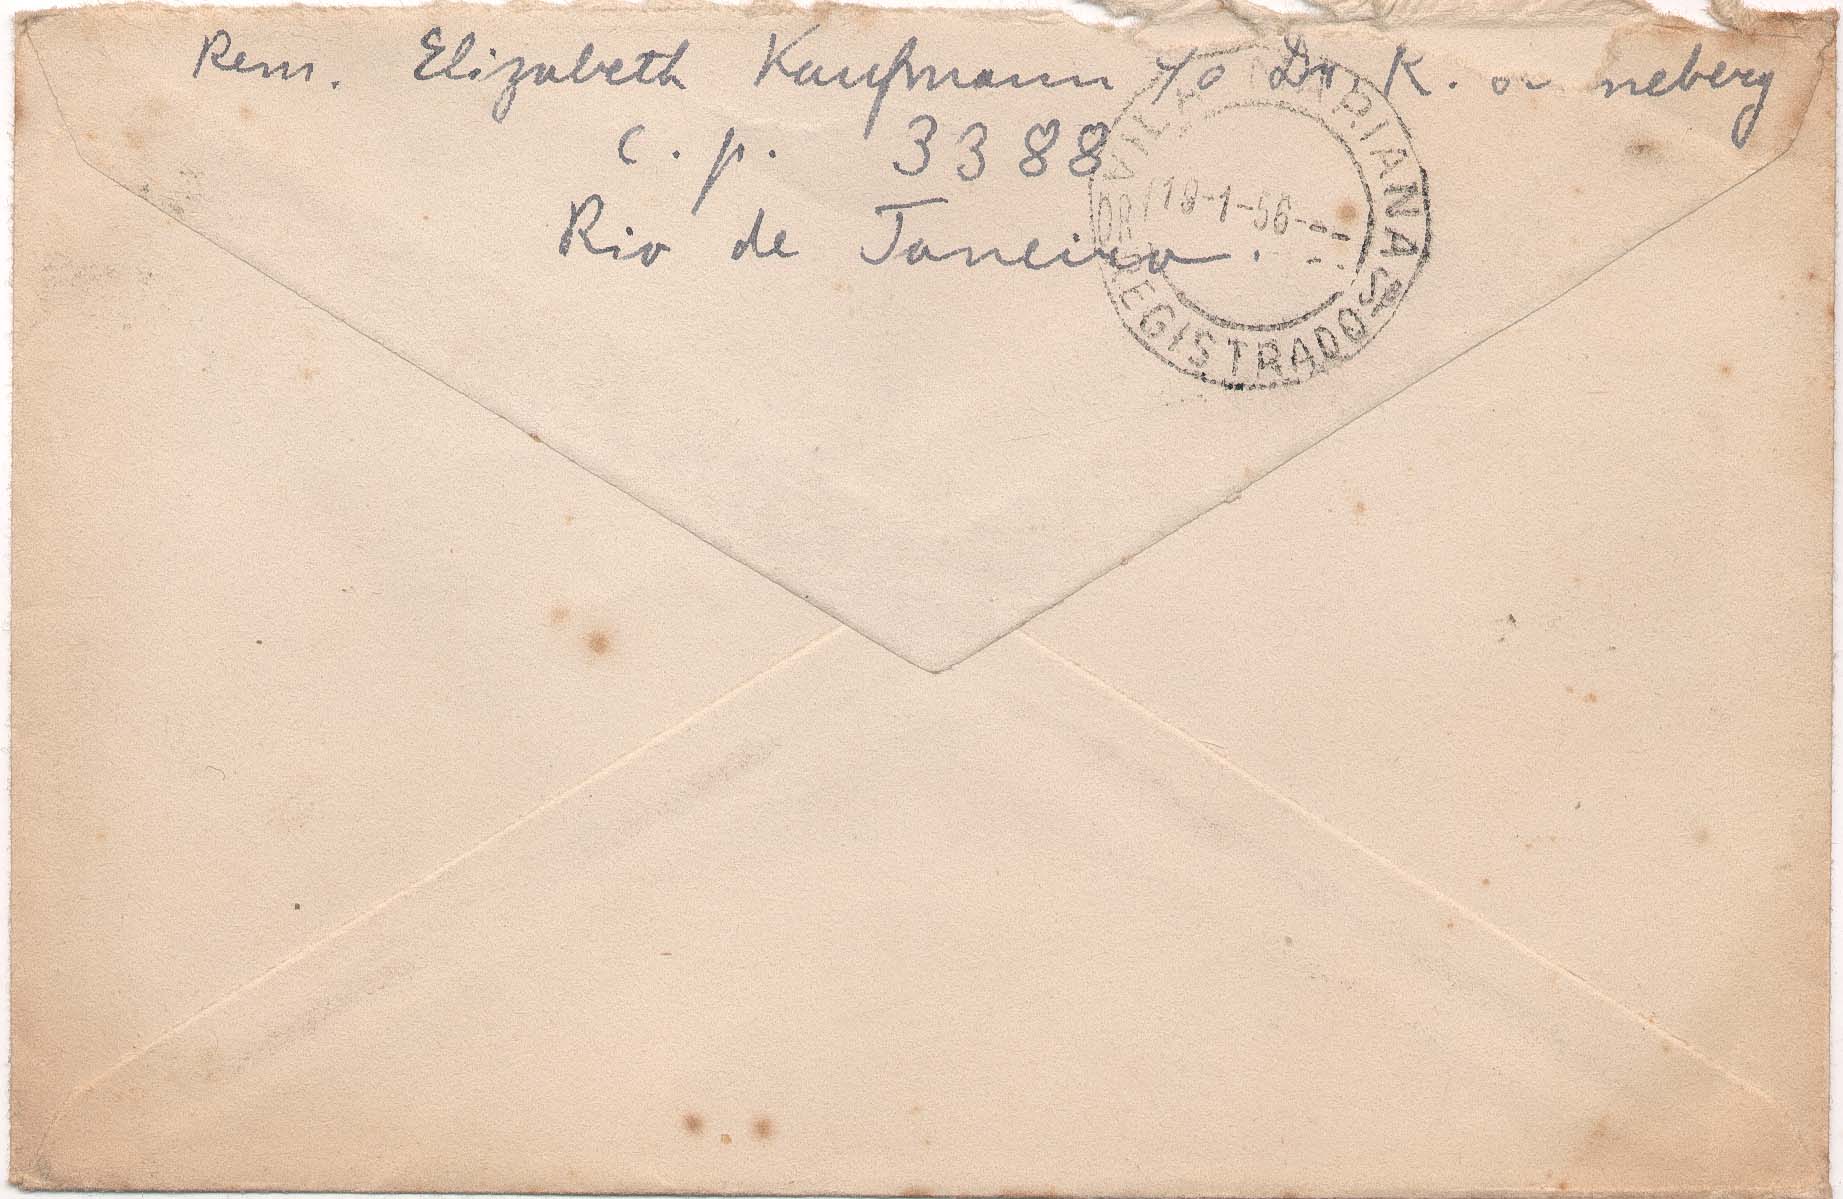 Rem. Elizabeth Kaufmann c/o Dr. K. neberg
C. p. 3388
Rio de Janeiro.
VILA MARIANA
18-1-56---
REGISTRADOS